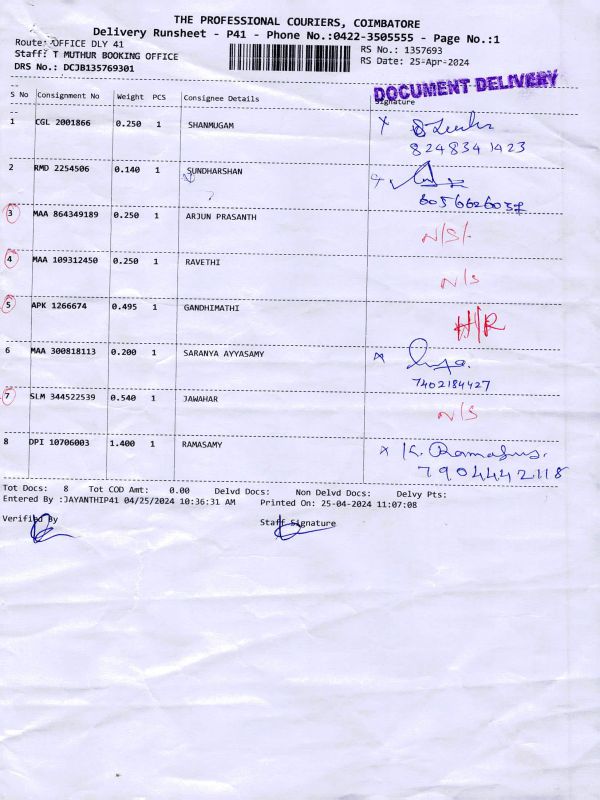 THE PROFESSIONAL COURIERS, COIMBATORE
Delivery Runsheet - P41 - Phone No.:0422-3505555 - Page No.:1
Route: OFFICE DLY 41
RS No.: 1357693
Staff: T MUTHUR BOOKING OFFICE
RS Date: 25-Apr-2024
DRS No.: DCJB135769301
DOCUMENT DELIVERY
S No Consignment No Weight PCS Consignee Details Signature
1 CGL 2001866 0.250 1 SHANMUGAM
8248341423
2 RMD 2254506 0.140 1 SUNDHARSHAN
3 MAA 864349189 0.250 1 ARJUN PRASANTH N/S/-
4 MAA 109312450 0.250 1 RAVETHI N/S
5 APK 1266674 0.495 1 GANDHIMATHI H/R
6 MAA 300818113 0.200 1 SARANYA AYYASAMY
7402184427
7 SLM 344522539 0.540 1 JAWAHAR N/S
8 DPI 10706003 1.400 1 RAMASAMY
7904442118
Tot Docs: 8 Tot COD Amt: 0.00 Delvd Docs: Non Delvd Docs: Delvy Pts:
Entered By :JAYANTHIP41 04/25/2024 10:36:31 AM Printed On: 25-04-2024 11:07:08
Verified By Staff Signature